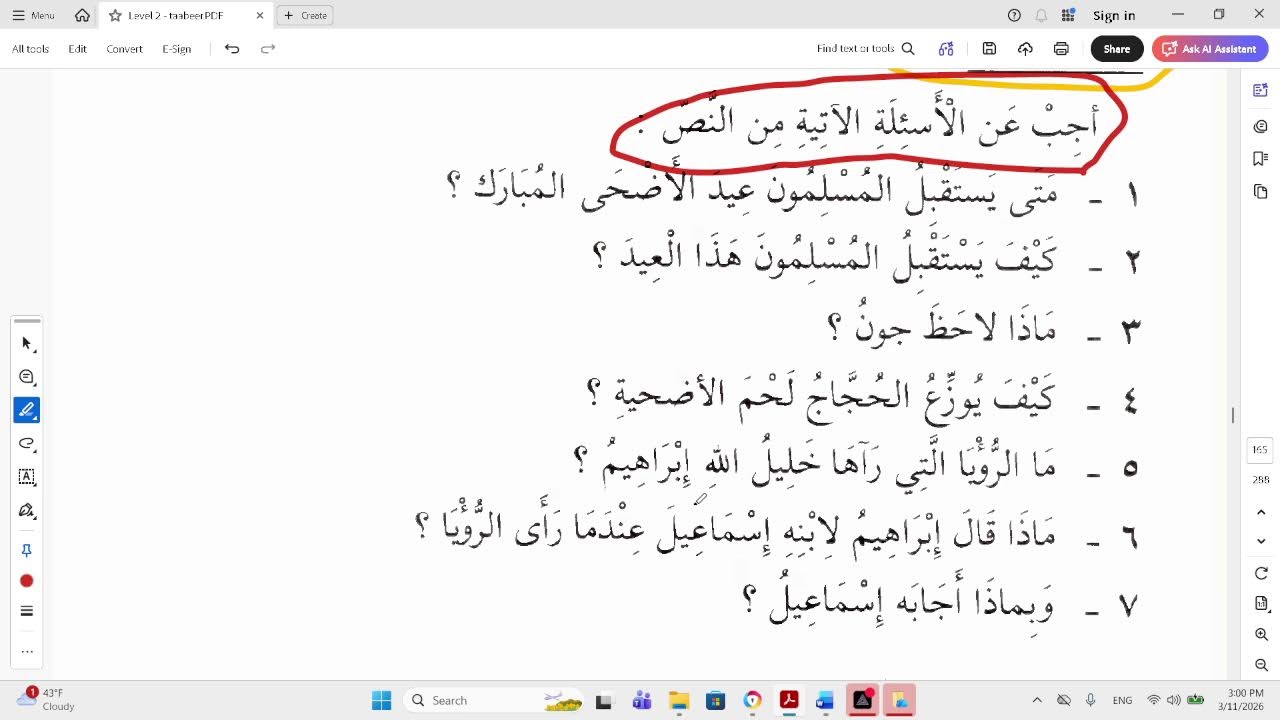 Menu
Level 2 - taabeer.PDF
Create
Sign in
All tools
Edit
Convert
E-Sign
Find text or tools
Share
Ask AI Assistant
أجِبْ عَن الْأَسئِلَةِ الآتِيةِ مِن النَّصّ :
١ ـ مَتَى يَستَقْبِلُ المُسْلِمُونَ عِيدَ الأَضْحَى المُبَارَك ؟
٢ ـ كَيْفَ يَسْتَقْبِلُ المُسْلِمُونَ هَذَا الْعِيدَ ؟
٣ ـ مَاذَا لاحَظَ جونُ ؟
٤ ـ كَيْفَ يُوزِّعُ الحُجَّاجُ لَحْمَ الأضحيةِ ؟
٥ ـ مَا الرُّؤْيَا الَّتِي رَآهَا خَلِيلُ اللهِ إِبْرَاهِيمُ ؟
٦ ـ مَاذَا قَالَ إِبْرَاهِيمُ لِابْنِهِ إِسْمَاعِيلَ عِنْدَمَا رَأَى الرُّؤْيَا ؟
٧ ـ وَبِماذَا أَجَابَه إِسْمَاعِيلُ ؟
165
288
1
43°F
Cloudy
Search
ENG
3:00 PM
3/11/2026